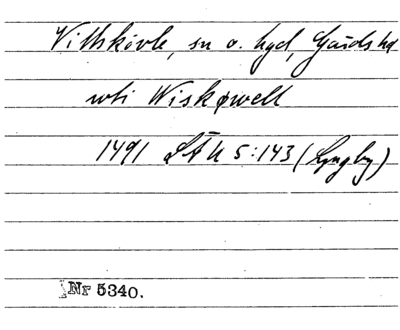 Vittskövle, sn o. hgd, Gärds hd
uti Wiskøwell
1491 LÄU 5:143 (Lyngby)
Nr 5340.